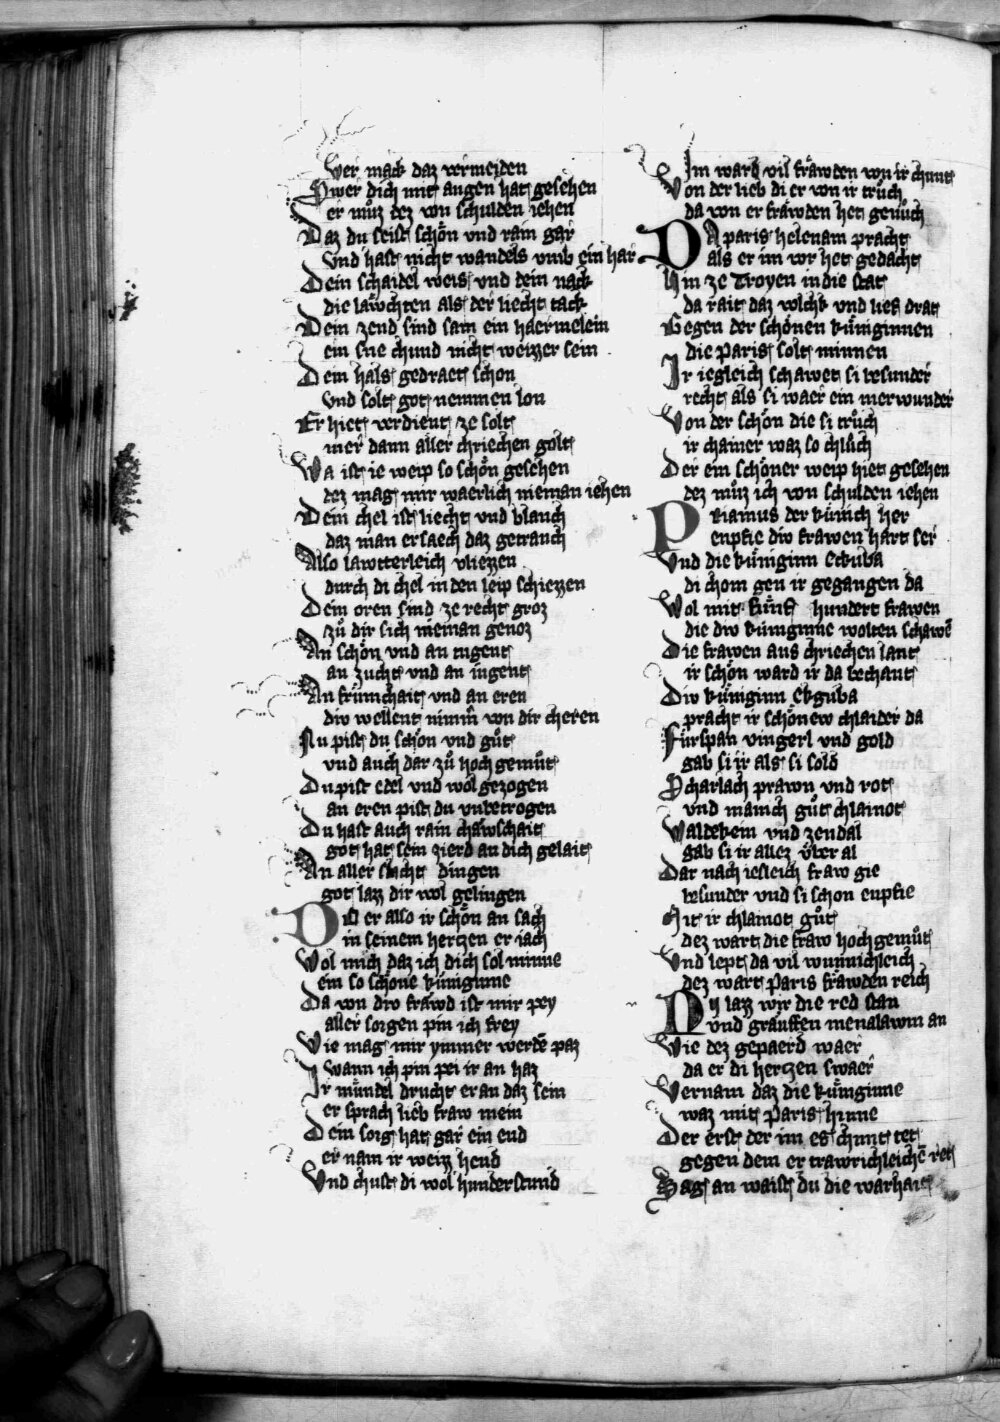 wer mack daz vermeiden
Swer dich mit augen hat gesehen
er můz dez von schulden iehen
Daz du seist schön vnd rain gar
vnd hast nicht wandels vmb ein har
Dein schaidel weis vnd dein nack
die läwchten als der liecht tack
Dein zend sind sam ein haermelein
ein sne chund nicht weizzer sein
Dein hals gedraet schon
vnd solt got nemmen lon
Er hiet verdient ze solt
mer dann aller chriechen golt
Wa ist ie weip so schön gesehen
dez mag mir waerlich nieman iehen
Dein chel ist liecht vnd blanch
daz man ersaech daz getranch
Also lawtterleich vliezzen
durch di chel in den leip schiezzen
Dein oren sind ze recht groz
zů dir sich nieman genoz
An schön vnd an tugent
an zucht vnd an iugent
An frümchait vnd an eren
div wellent nimm von dir cheren
Nu pist du schön vnd gůt
vnd auch dar zů hoch gemůt
Du pist edel vnd wol gezogen
an eren pist du vnbetrogen
Du hast auch rain chäwschait
got hat sein zierd an dich gelait
An aller slacht dingen
got lazz dir wol gelingen
Do er also ir schön an sach
in seinem hertzen er iach
Wol mich daz ich dich sol minne
ein so schöne küniginne
Da von div fräwd ist mir pey
aller sorgen pin ich frey
Wie mag mir ymmer werdē paz
wann ich pin pei ir an haz
Ir mündel drucht er an daz sein
er sprach lieb fraw mein
Dein sorg hat gar ein end
er nam ir weizz hend
Vnd chust di wol hunderstund
Im ward vil fräwden von ir chunt
Von der lieb di er von ir trůch
da von er fräwden het genůch
DA paris helenam pracht
als er im vor het gedacht
Hin ze Troyen in die stat
da rait daz volchk vnd lief drat
Gegen der schönen küniginnen
die Paris solt minnen
Ir iegleich schawet si besunder
recht als si waer ein merwunder
Von der schön die si trůch
ir chainer waz so chlůch
Der ein schöner weip hiet gesehen
dez můz ich von schulden iehen
PRiamus der künich her
enpfie div frawen hart ser
Vnd die küniginn Eckuba
di chom gen ir gegangen da
Wol mit fünf hundert frawen
die div küniginne wolten schawē
Die frawen aus chriechen lant
ir schön ward ir da bechant
Div küniginn Ekguba
pracht ir schönew chlaider da
Fürspan vingerl vnd gold
gab si ir als si sold
Scharlach prawn vnd rot
vnd manich gůt chlainot
Waldekein vnd zendal
gab si ir allez über al
Dar nach iesleich fraw gie
besunder vnd si schon enpfie
Mit ir chlainot gůt
dez wart die fraw hoch gemůt
Vnd lept da vil wunnichleich
dez wart Paris fräwden reich
NV lazz wir die red stan
vnd gräuffen menalawm an
Wie dez gepaerd waer
da er di hertzen swaer
Vernam daz die küniginne
waz mit Paris hinne
Der erst der im es chunt tet
gegen dem er trawrichleichē ret
Sag an waist du die warhait